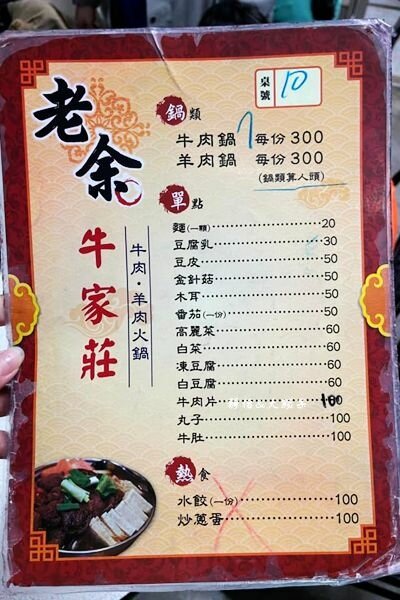 桌號 10
老余
牛家莊
牛肉·羊肉火鍋
鍋類
牛肉鍋 每份 300
羊肉鍋 每份 300
(鍋類算人頭)
單點
麵(一顆) 20
豆腐乳 30
豆皮 50
金針菇 50
木耳 50
番茄(一份) 50
高麗菜 60
白菜 60
凍豆腐 60
白豆腐 60
牛肉片 100
丸子 100
牛肚 100
熱食
水餃(一份) 100
炒蔥蛋 100